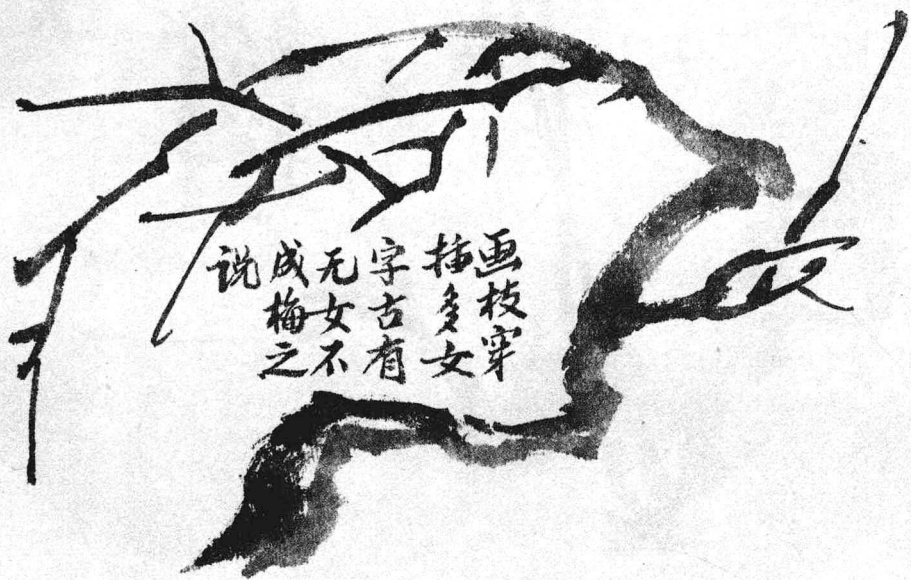 画枝穿
插多女
字古有
无女不
成梅之
说